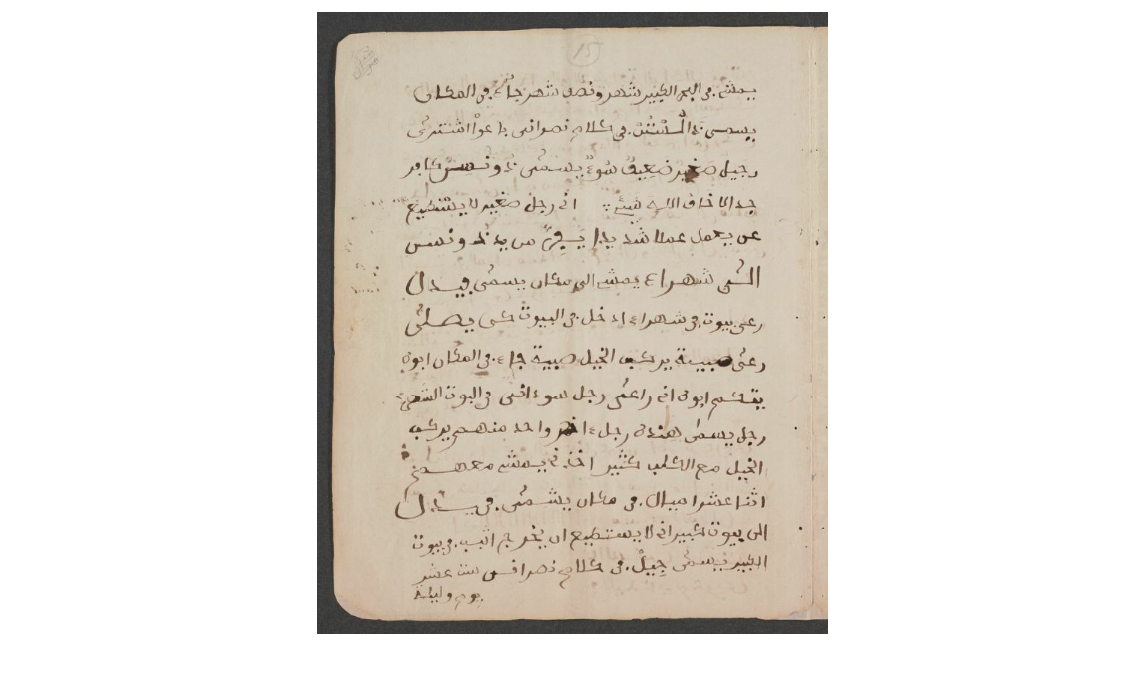 15
يمش في البحر الكبير شهر ونصف شهر جاء في المكان
يسمى في كلام نصراني باعوا اشترى
رجل صغير ضعيف سوء يسمى كافر
جدا لا خاف الله شيء اني رجل صغير لا يستطيع
عن يعمل عملا شديدا من يد
شهرا يمش الى مكان يسمى فيدل
رعى بيوت في شهراء ادخل في البيوت كى يصلى
رعى صبية يركب الخيل صبية جاء في المكان ابوه
ابوه انه راعى رجل سوءاني في البيوت
رجل يسمى هنده رجل ءاخر واحد منهم يركب
الخيل مع الكلب كثير اخذ يمش معهم
اثنا عشرا ميال في مكان يسمى فيدل
الى بيوت كبير اني لا يستطيع ان يخرج في بيوت
الكبير يسمى جيل في كلام نصرانى ست عشر
يوم وليلة